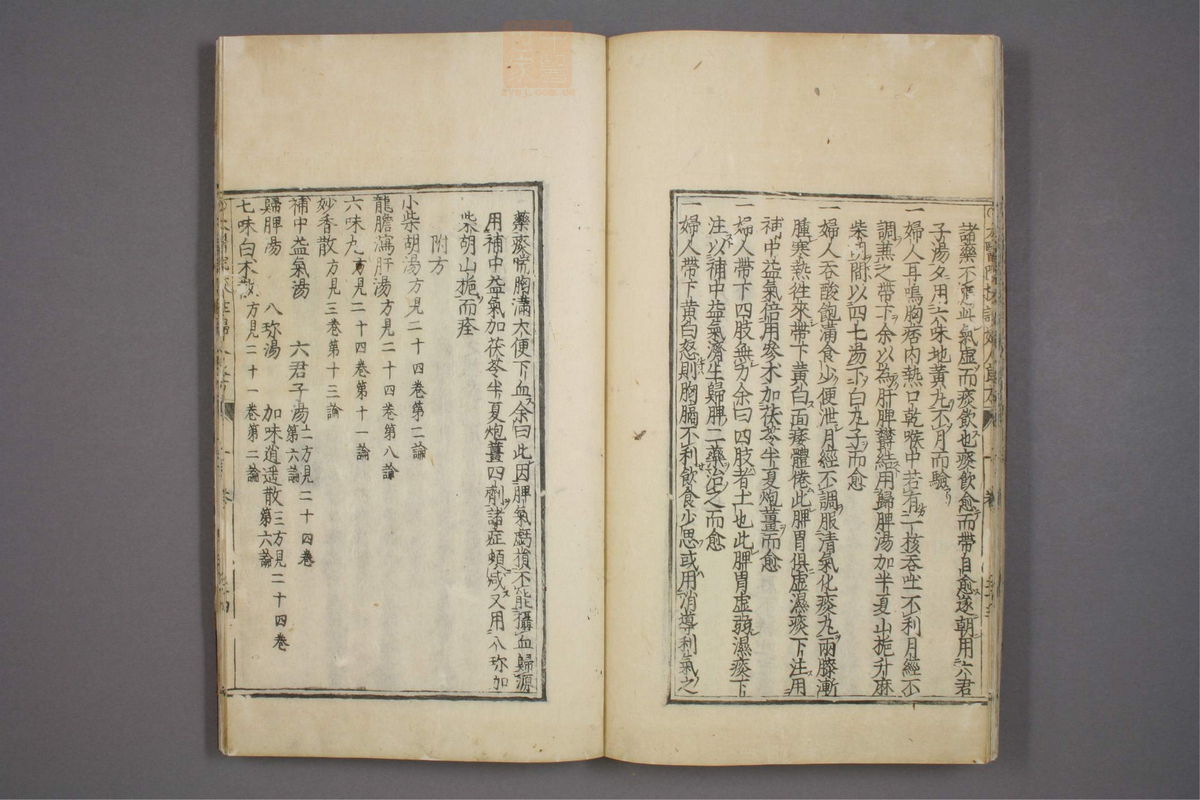 諸藥不應此氣虛而痰飲也痰飲愈而帶自愈遂朝用六君
子湯夕用六味地黃丸不月而驗
一婦人耳鳴胸痞內熱口乾喉中若有一核吞吐不利月經不
調兼之帶下余以為肝脾鬱結用歸脾湯加半夏山梔升麻
柴胡間以四七湯下白丸子而愈
一婦人吞酸飽滿食少便泄月經不調服清氣化痰丸兩膝漸
腫寒熱往來帶下黃白面痿體倦此脾胃俱虛濕痰下注用
補中益氣倍用參朮加茯苓半夏炮薑而愈
一婦人帶下四肢無力余曰四肢者土也此脾胃虛弱濕痰下
注以補中益氣濟生歸脾二藥治之而愈
一婦人帶下黃白怒則胸膈不利飲食少思或用消導利氣之
藥痰喘胸滿大便下血余曰此因脾氣虧損不能攝血歸源
用補中益氣加茯苓半夏炮薑四劑諸症頓減又用八珍加
柴胡山梔而痊
附方
小柴胡湯方見二十四卷第二論
龍膽瀉肝湯方見二十四卷第八論
六味丸方見二十四卷第十一論
妙香散方見三卷第十三論
補中益氣湯 六君子湯二方見二十四卷第六論
歸脾湯 八珍湯 加味逍遥散三方見二十四卷第六論
七味白朮散方見二十一卷第二論